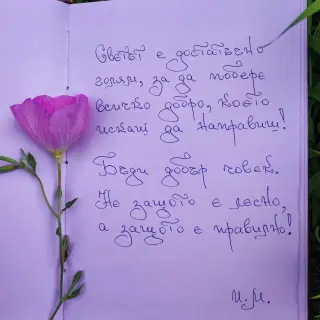 Светът е достатъчно
голям, за да побере
всичко добро, което
искаш да направиш!
Бъди добър човек.
Не защото е лесно,
а защото е правилно!
И.М.